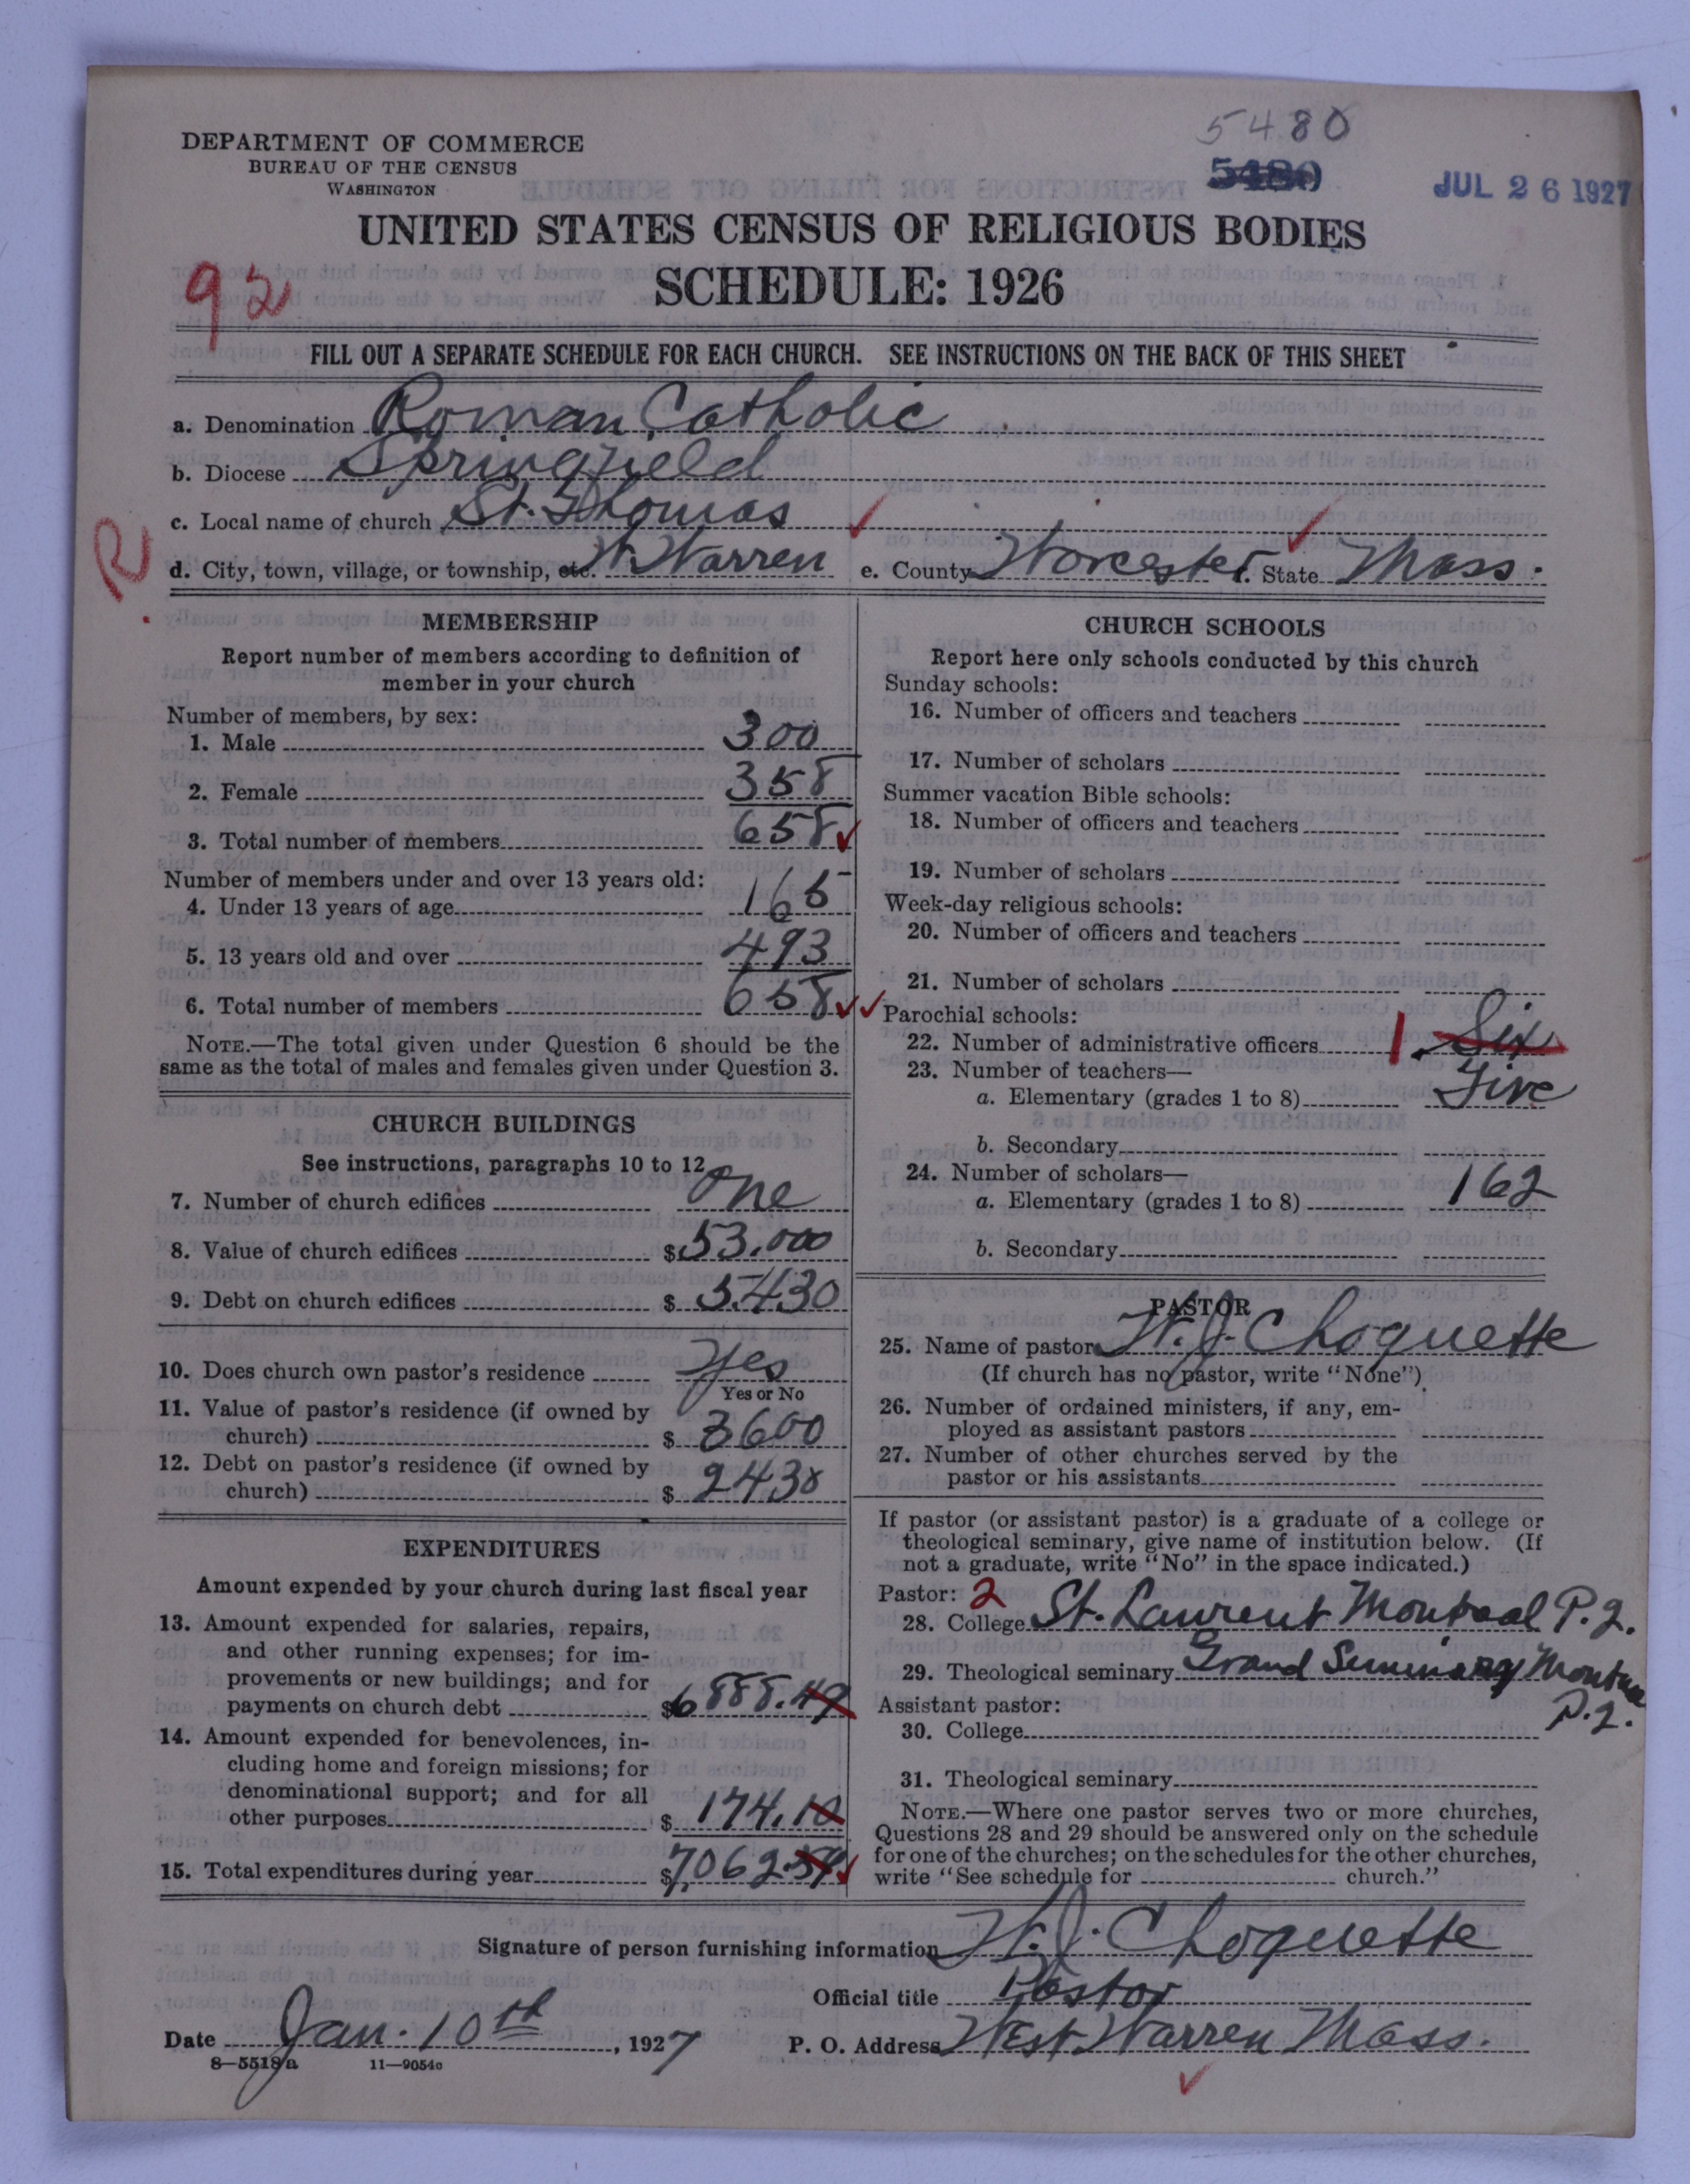 5480
DEPARTMENT OF COMMERCE
BUREAU OF THE CENSUS
WASHINGTON
5480
JUL 26 1927
UNITED STATES CENSUS OF RELIGIOUS BODIES
SCHEDULE: 1926
92
FILL OUT A SEPARATE SCHEDULE FOR EACH CHURCH. SEE INSTRUCTIONS ON THE BACK OF THIS SHEET
a. Denomination Roman Catholic
b. Diocese Springfield
c. Local name of church St. Thomas
R
d. City, town, village, or township, etc. W. Warren e. County Worcester. State Mass.
MEMBERSHIP
Report number of members according to definition of
member in your church
Number of members, by sex:
1. Male 300
2. Female 358
3. Total number of members 658
Number of members under and over 13 years old:
4. Under 13 years of age 165
5. 13 years old and over 493
6. Total number of members 658
NOTE.—The total given under Question 6 should be the
same as the total of males and females given under Question 3.
CHURCH BUILDINGS
See instructions, paragraphs 10 to 12
7. Number of church edifices One
8. Value of church edifices $53.000
9. Debt on church edifices $5.430
10. Does church own pastor's residence Yes
Yes or No
11. Value of pastor's residence (if owned by
church) $3600
12. Debt on pastor's residence (if owned by
church) $2430
EXPENDITURES
Amount expended by your church during last fiscal year
13. Amount expended for salaries, repairs,
and other running expenses; for im-
provements or new buildings; and for
payments on church debt $6888.49
14. Amount expended for benevolences, in-
cluding home and foreign missions; for
denominational support; and for all
other purposes $174.10
15. Total expenditures during year $7,062.59
CHURCH SCHOOLS
Report here only schools conducted by this church
Sunday schools:
16. Number of officers and teachers
17. Number of scholars
Summer vacation Bible schools:
18. Number of officers and teachers
19. Number of scholars
Week-day religious schools:
20. Number of officers and teachers
21. Number of scholars
Parochial schools:
22. Number of administrative officers 1. Six
23. Number of teachers—
a. Elementary (grades 1 to 8) Five
b. Secondary
24. Number of scholars—
a. Elementary (grades 1 to 8) 162
b. Secondary
PASTOR
25. Name of pastor W. J. Choquette
(If church has no pastor, write "None")
26. Number of ordained ministers, if any, em-
ployed as assistant pastors
27. Number of other churches served by the
pastor or his assistants
If pastor (or assistant pastor) is a graduate of a college or
theological seminary, give name of institution below. (If
not a graduate, write "No" in the space indicated.)
Pastor: 2
28. College St. Laurent Montreal P.Q.
29. Theological seminary Grand Seminary Montreal
P.Q.
Assistant pastor:
30. College
31. Theological seminary
NOTE.—Where one pastor serves two or more churches,
Questions 28 and 29 should be answered only on the schedule
for one of the churches; on the schedules for the other churches,
write "See schedule for church."
Signature of person furnishing information W. J. Choquette
Official title Pastor
Date Jan. 10th, 1927 P. O. Address West Warren Mass.
8—5518a 11—9054a